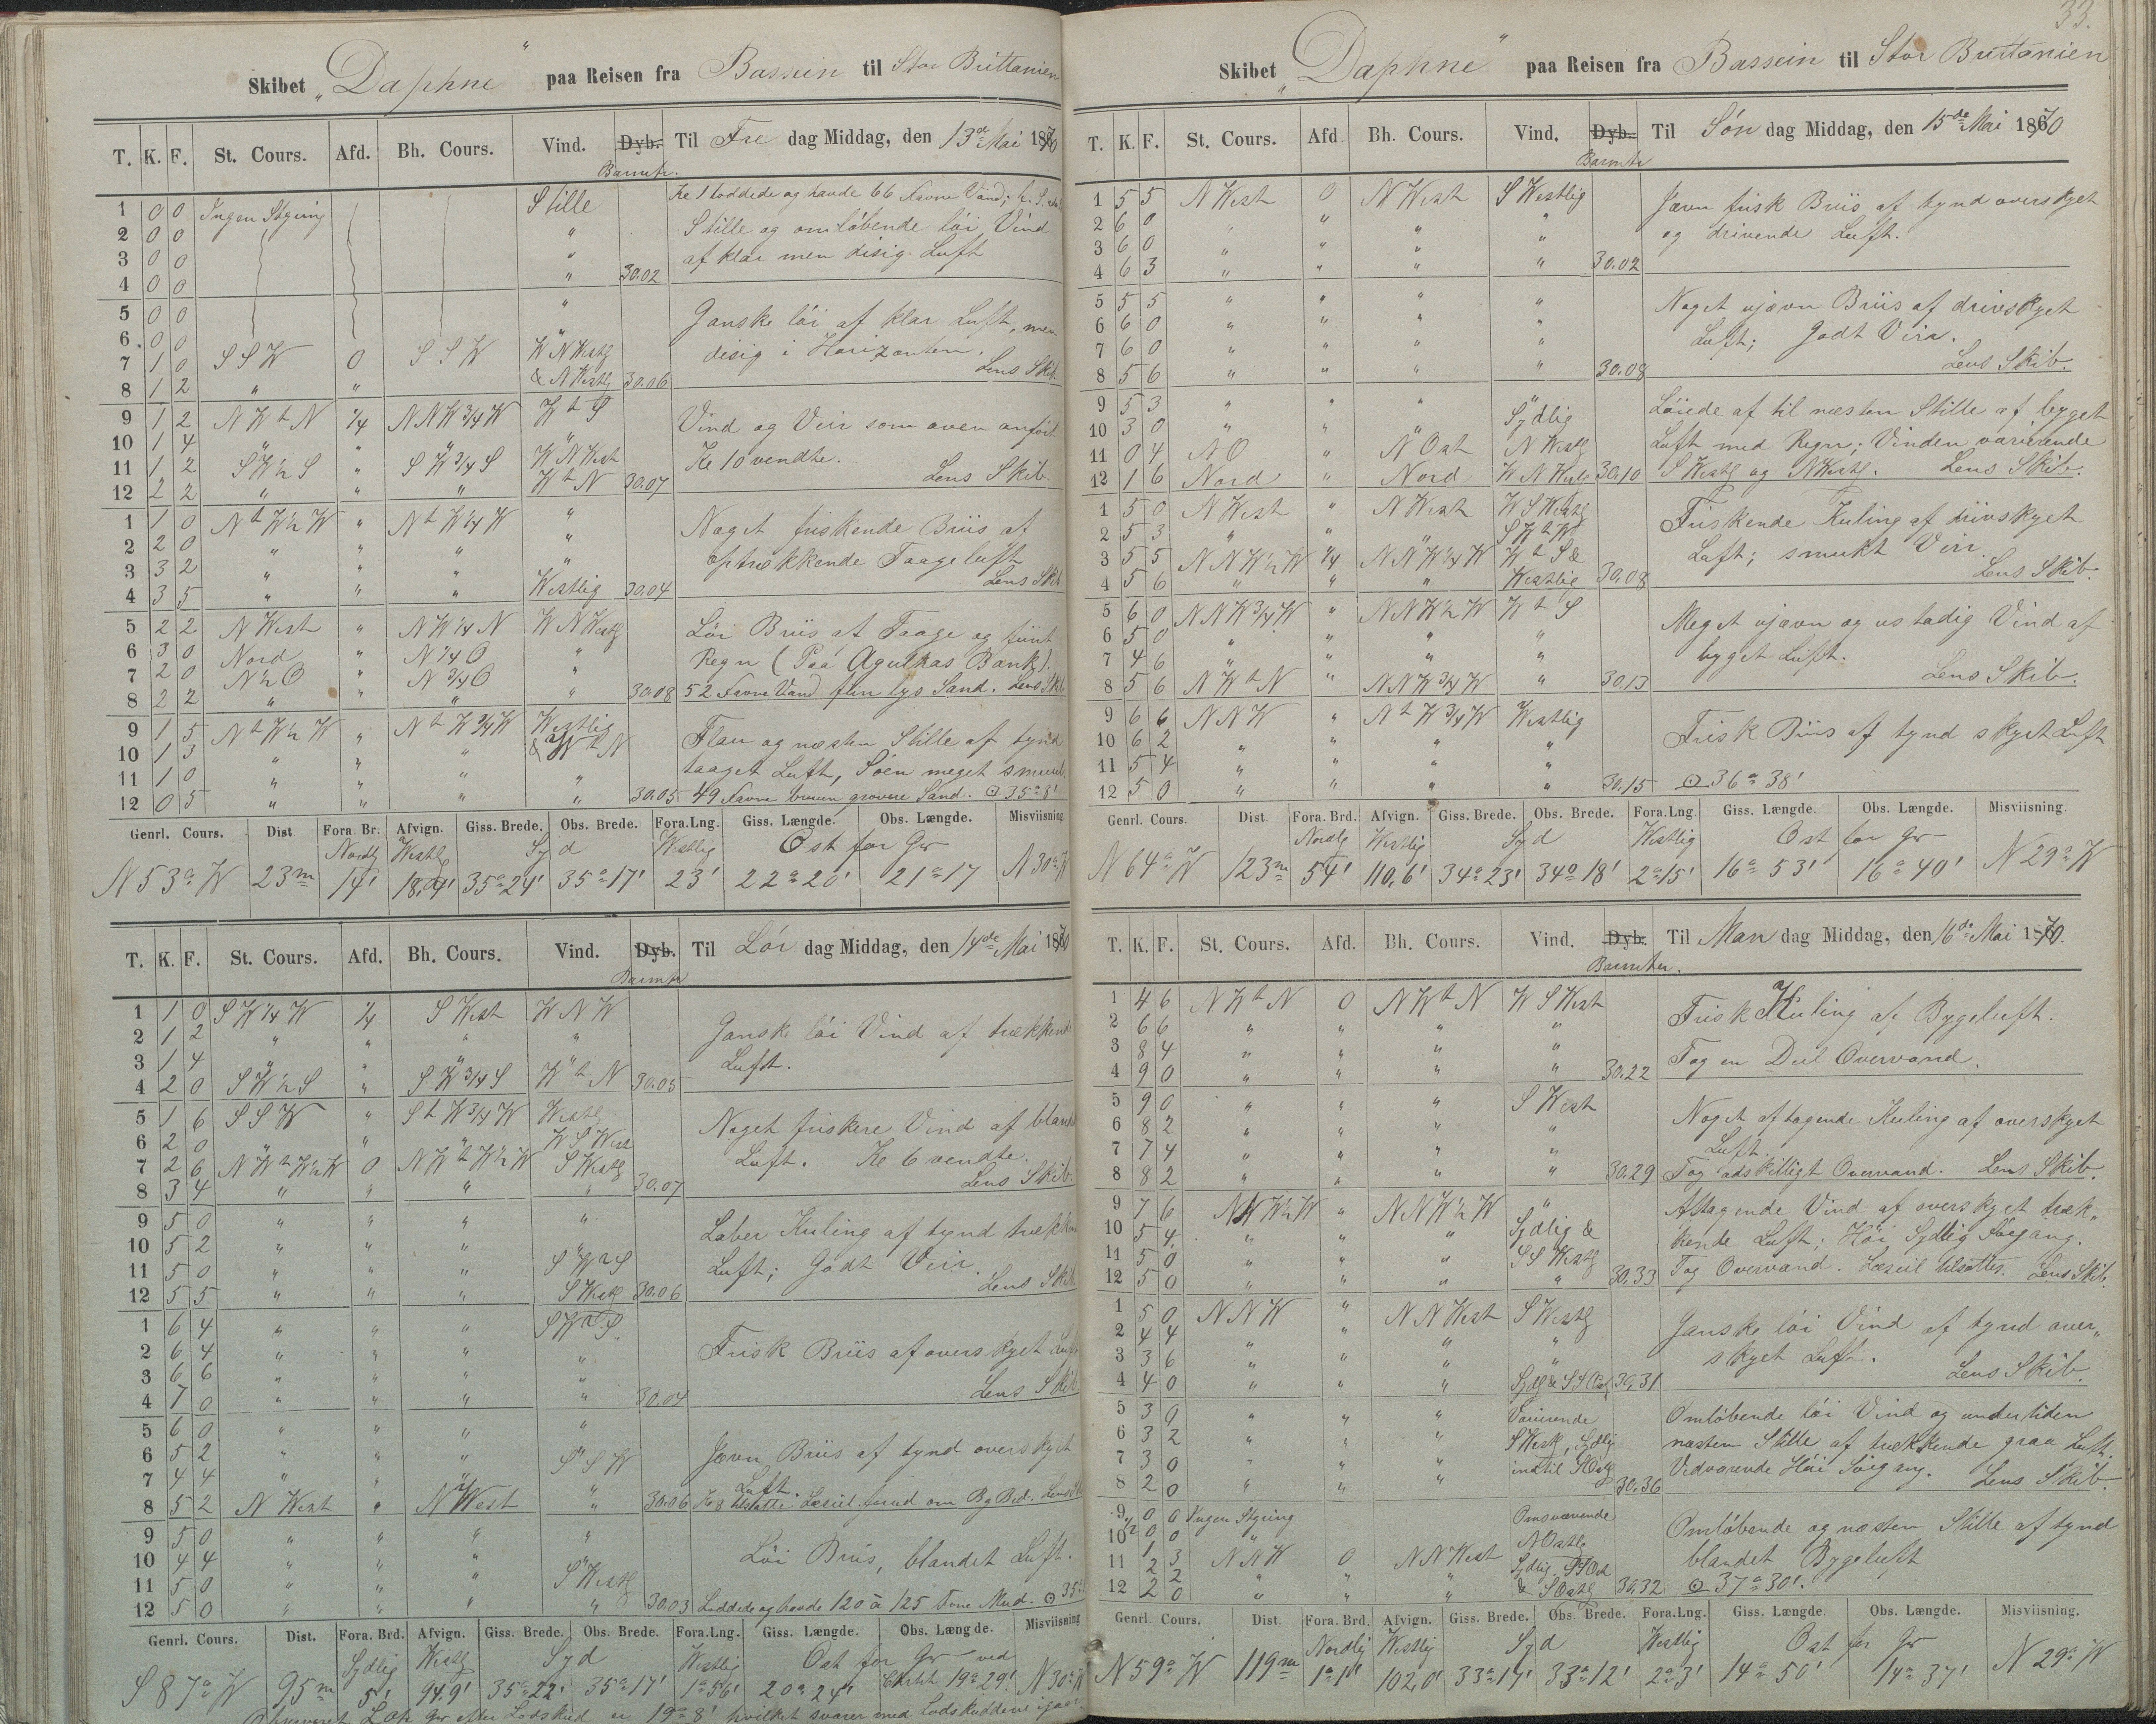 Skibet „Daphne“ paa Reisen fra Bassein til Stor Brittanien
T. K. F. St. Cours. Afd. Bh. Cours. Vind. Dyb. Barmtr. Til Fre dag Middag, den 13de Mai 1870
1 0 0 Ingen Styring Stille Ke 1 loddede og havde 66 Favne Vand;
2 0 0 " Stille og omløbende løi Vind
3 0 0 " af klar men disig Luft
4 0 0 " 30.02
5 0 0 " Ganske løi af klar Luft, men
6 0 0 " disig i Horizonten.
7 1 0 S S W 0 S S W W N Westlg Lens Skib.
8 1 2 " " & N Westlg 30.06
9 1 2 N W t N 1/4 N N W 3/4 W W t S Vind og Veir som oven anført
10 1 4 " " " " Ke 10 vendte.
11 1 2 S W 1/2 S " S W 3/4 S W N West Lens Skib.
12 2 2 " " " W t N 30.07
1 1 0 N t W 1/2 W " N t W 1/4 W " Noget friskende Briis af
2 2 0 " " " " optrækkende Taageluft
3 3 2 " " " " Lens Skib.
4 3 5 " " " Westlig 30.04
5 2 2 N West " N W 1/4 N W N Westlg Løi Briis af Taage og fiint
6 3 0 Nord " N 1/4 O " Regn (Paa Agulhas Bank).
7 2 0 N 1/2 O " N 3/4 O "
8 2 2 " " " " 30.08 52 Favne Vand fiin lys Sand. Lens Skib
9 1 5 N t W 1/2 W " N t W 3/4 W Westlig Flau og næsten Stille af tynd
10 1 3 " " " & W t N taaget Luft, Søen meget smuul.
11 1 0 " " " "
12 0 5 " " " " 30.05 49 Favne bruun grovere Sand. ⊙ 35° 8'
Genrl. Cours. Dist. Fora. Br. Afvign. Giss. Brede. Obs. Brede. Fora. Lng. Giss. Længde. Obs. Længde. Misviisning.
Nordlg Westlg Syd Westlig Ost for Gr
N 53° W 23m 14' 18,4' 35° 24' 35° 17' 23' 22° 20' 21° 17 N 30° W
T. K. F. St. Cours. Afd. Bh. Cours. Vind. Dyb. Barmtr Til Lør dag Middag, den 14de Mai 1870
1 1 0 S W 1/4 W 1/4 S West W N W Ganske løi Vind af trækkend
2 1 2 " " " " Luft.
3 1 4 " " " "
4 2 0 S W 1/2 S " S W 3/4 S W t N 30.05
5 1 6 S S W " S t W 3/4 W Westlg Noget friskere Vind af bland
6 2 0 " " " W S West Luft. Ke 6 vendte.
7 2 6 N W t W 1/2 W 0 N W t W 1/2 W S Westlg Lens Skib.
8 3 4 " " " " 30.07
9 5 0 " " " " Laber Kuling af tynd trækken
10 5 2 " " " " Luft; Godt Veir.
11 5 0 " " " S W t S Lens Skib
12 5 5 " " " S Westlg 30.06
1 6 4 " " " S W t S Frisk Briis af overskyet Luft
2 6 4 " " " "
3 6 6 " " " " Lens Skib
4 7 0 " " " " 30.04
5 6 0 " " " " Jævn Briis af tynd overskyet
6 5 2 " " " S S W Luft.
7 4 4 " " " "
8 5 2 N West " N West " 30.06 Ke 8 tilsatte Læseil forud om Bg Bd. Lens Sk
9 5 0 " " " " Løi Briis, blandet Luft.
10 4 4 " " " "
11 5 0 " " " S Westlg
12 5 0 " " " " 30.03 Loddede og havde 120 à 125 Fvne Mud. ⊙ 35°
Genrl. Cours. Dist. Fora. Brd. Afvign. Giss. Brede. Obs. Brede. Fora. Lng. Giss. Længde. Obs. Længde. Misviisning
Sydlig Westlg Syd Westlig Ost for Gr ved
S 87° W 95m 5' 94.9' 35° 22' 35° 17' 1° 56' 20° 24' 19° 29' N 30° W
Observeret Lgn Gr efter Lodskud er 19° 8' hvilket svarer med Lodskuddene igaar
33.
Skibet „Daphne“ paa Reisen fra Bassein til Stor Brittanien
T. K. F. St. Cours. Afd Bh. Cours. Vind. Dyb. Barmtr Til Søn dag Middag, den 15de Mai 1870
1 5 5 N West 0 N West S Westlig Jævn frisk Briis af tynd overskyet
2 6 0 " " " " og drivende Luft.
3 6 0 " " " "
4 6 3 " " " " 30.02
5 5 5 " " " " Noget ujævn Briis af drivskyet
6 6 0 " " " " Luft; Godt Veir.
7 6 0 " " " " Lens Skib.
8 5 6 " " " " 30.08
9 5 3 " " " " Løiede af til næsten Stille af byget
10 3 0 " " " Sydlig Luft med Regn; Vinden varierende
11 0 4 N O " N Ost N Westlg S Westlg og N Westlg. Lens Skib.
12 1 6 Nord " Nord W N Westlg 30.10
1 5 0 N West " N West W S Westlg Friskende Kuling af drivskyet
2 5 3 " " " S W t W Luft; smukt Veir.
3 5 5 N N W 1/2 W 1/4 N N W 1/4 W W t S & Lens Skib.
4 5 6 " " " Westlig 30.08
5 6 0 N N W 3/4 W " N N W 1/2 W W t S Meget ujævn og ustadig Vind af
6 5 0 " " " " byget Luft.
7 4 6 " " " " Lens Skib.
8 5 6 N W t N " N N W 3/4 W " 30.13
9 6 6 N N W " N t W 3/4 W Westlig Frisk Briis af tynd skyet Luft
10 6 2 " " " "
11 5 4 " " " "
12 5 0 " " " " 30.15 ⊙ 36° 38'
Genrl. Cours. Dist. Fora. Brd. Afvign. Giss. Brede. Obs. Brede. Fora. Lng. Giss. Længde. Obs. Længde. Misviisning.
Nordlg Westlig Syd Westlig Ost for Gr
N 64° W 123m 54' 110,6' 34° 23' 34° 18' 2° 15' 16° 53' 16° 40' N 29° W
T. K. F. St. Cours. Afd. Bh. Cours. Vind. Dyb. Barmter. Til Man dag Middag, den 16de Mai 1870.
1 4 6 N W t N 0 N W t N W S West Frisk Kuling af Bygeluft.
2 6 6 " " " "
3 8 4 " " " " Tog en Deel Overvand.
4 9 0 " " " " 30.22
5 9 0 " " " S West Noget aftagende Kuling af overskyet
6 8 2 " " " " Luft.
7 7 4 " " " "
8 8 2 " " " " 30.29 Tog adskilligt Overvand. Lens Skib.
9 7 6 N N W 1/2 W " N N W 1/2 W " Aftagende Vind af overskyet træk„
10 5 4 " " " Sydlig & kende Luft; Høi Sydlig Søegang.
11 5 0 " " " S S Westlg Tog Overvand. Læseil tilsattes. Lens Skib.
12 5 0 " " " " 30.33
1 5 0 N N W " N N West S Westlg Ganske løi Vind af tynd over„
2 4 4 " " " " skyet Luft.
3 3 6 " " " " Lens Skib.
4 4 0 " " " Sydlg & S S Ostlg 30,31
5 3 9 " " " Varierende Omløbende løi Vind og undertiden
6 3 2 " " " S West, Sydlig næsten Stille af trækkende graa Luft.
7 3 0 " " " indtil S Ostlg Vedvarende Høi Søegang. Lens Skib.
8 2 0 " " " 30.36
9 0 0 Ingen Styring Omsvævende Omløbende og næsten Stille af tynd
10 1/2 0 0 " N Ostlg blandet Bygeluft
11 2 2 N N W 0 N N West Sydlig, S S Ost
12 2 0 " " " & S Ostlg 30,32 ⊙ 37° 30'.
Genrl. Cours. Dist. Fora. Brd. Afvign. Giss. Brede. Obs. Brede. Fora. Lng. Giss. Længde. Obs. Længde. Misviisning.
Nordlig Westlig Syd Westlig Ost for Gr
N 59° W 119m 1° 1' 102,0' 33° 17' 33° 12' 2° 3' 14° 50' 14° 37' N 29° W